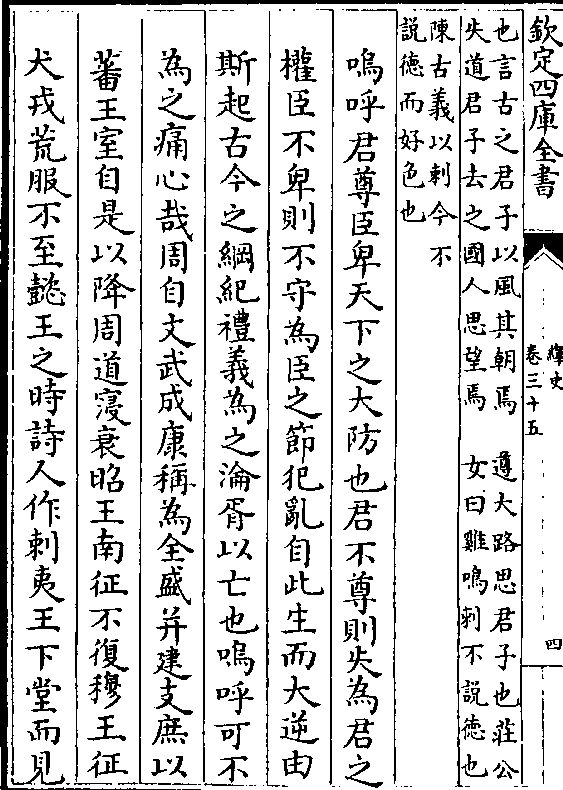 欽定四庫全書
繹史
卷三十五
四
也言古之君子以風其朝焉　遵大路思君子也莊公
失道君子去之國人思望焉　女曰雞鳴刺不説德也
陳古義以刺今不
説德而好色也
嗚呼君尊臣卑天下之大防也君不尊則失為君之
權臣不卑則不守為臣之節犯亂自此生而大逆由
斯起古今之綱紀禮義為之淪胥以亡也嗚呼可不
為之痛心哉周自文武成康稱為全盛并建支庶以
蕃王室自是以降周道寖衰昭王南征不復穆王征
犬戎荒服不至懿王之時詩人作刺夷王下堂而見